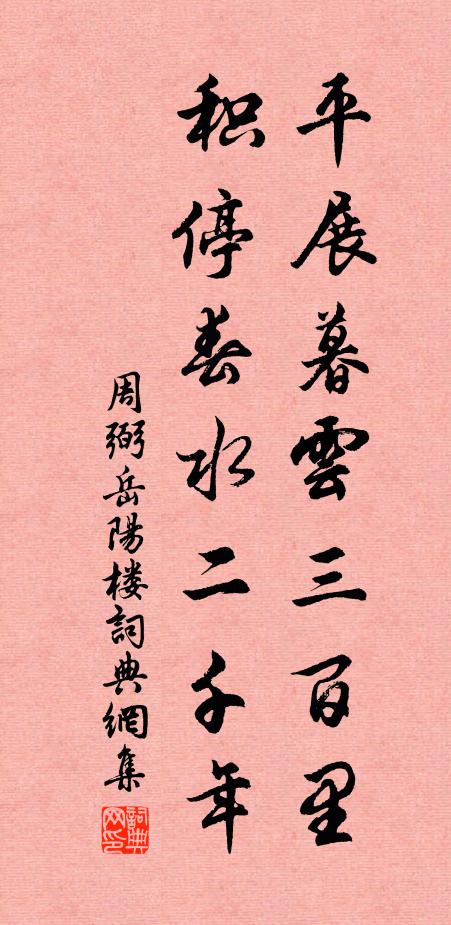 平展暮雲三百里
积停春水二千年
周弼岳陽楼詞典網集
詞典网印